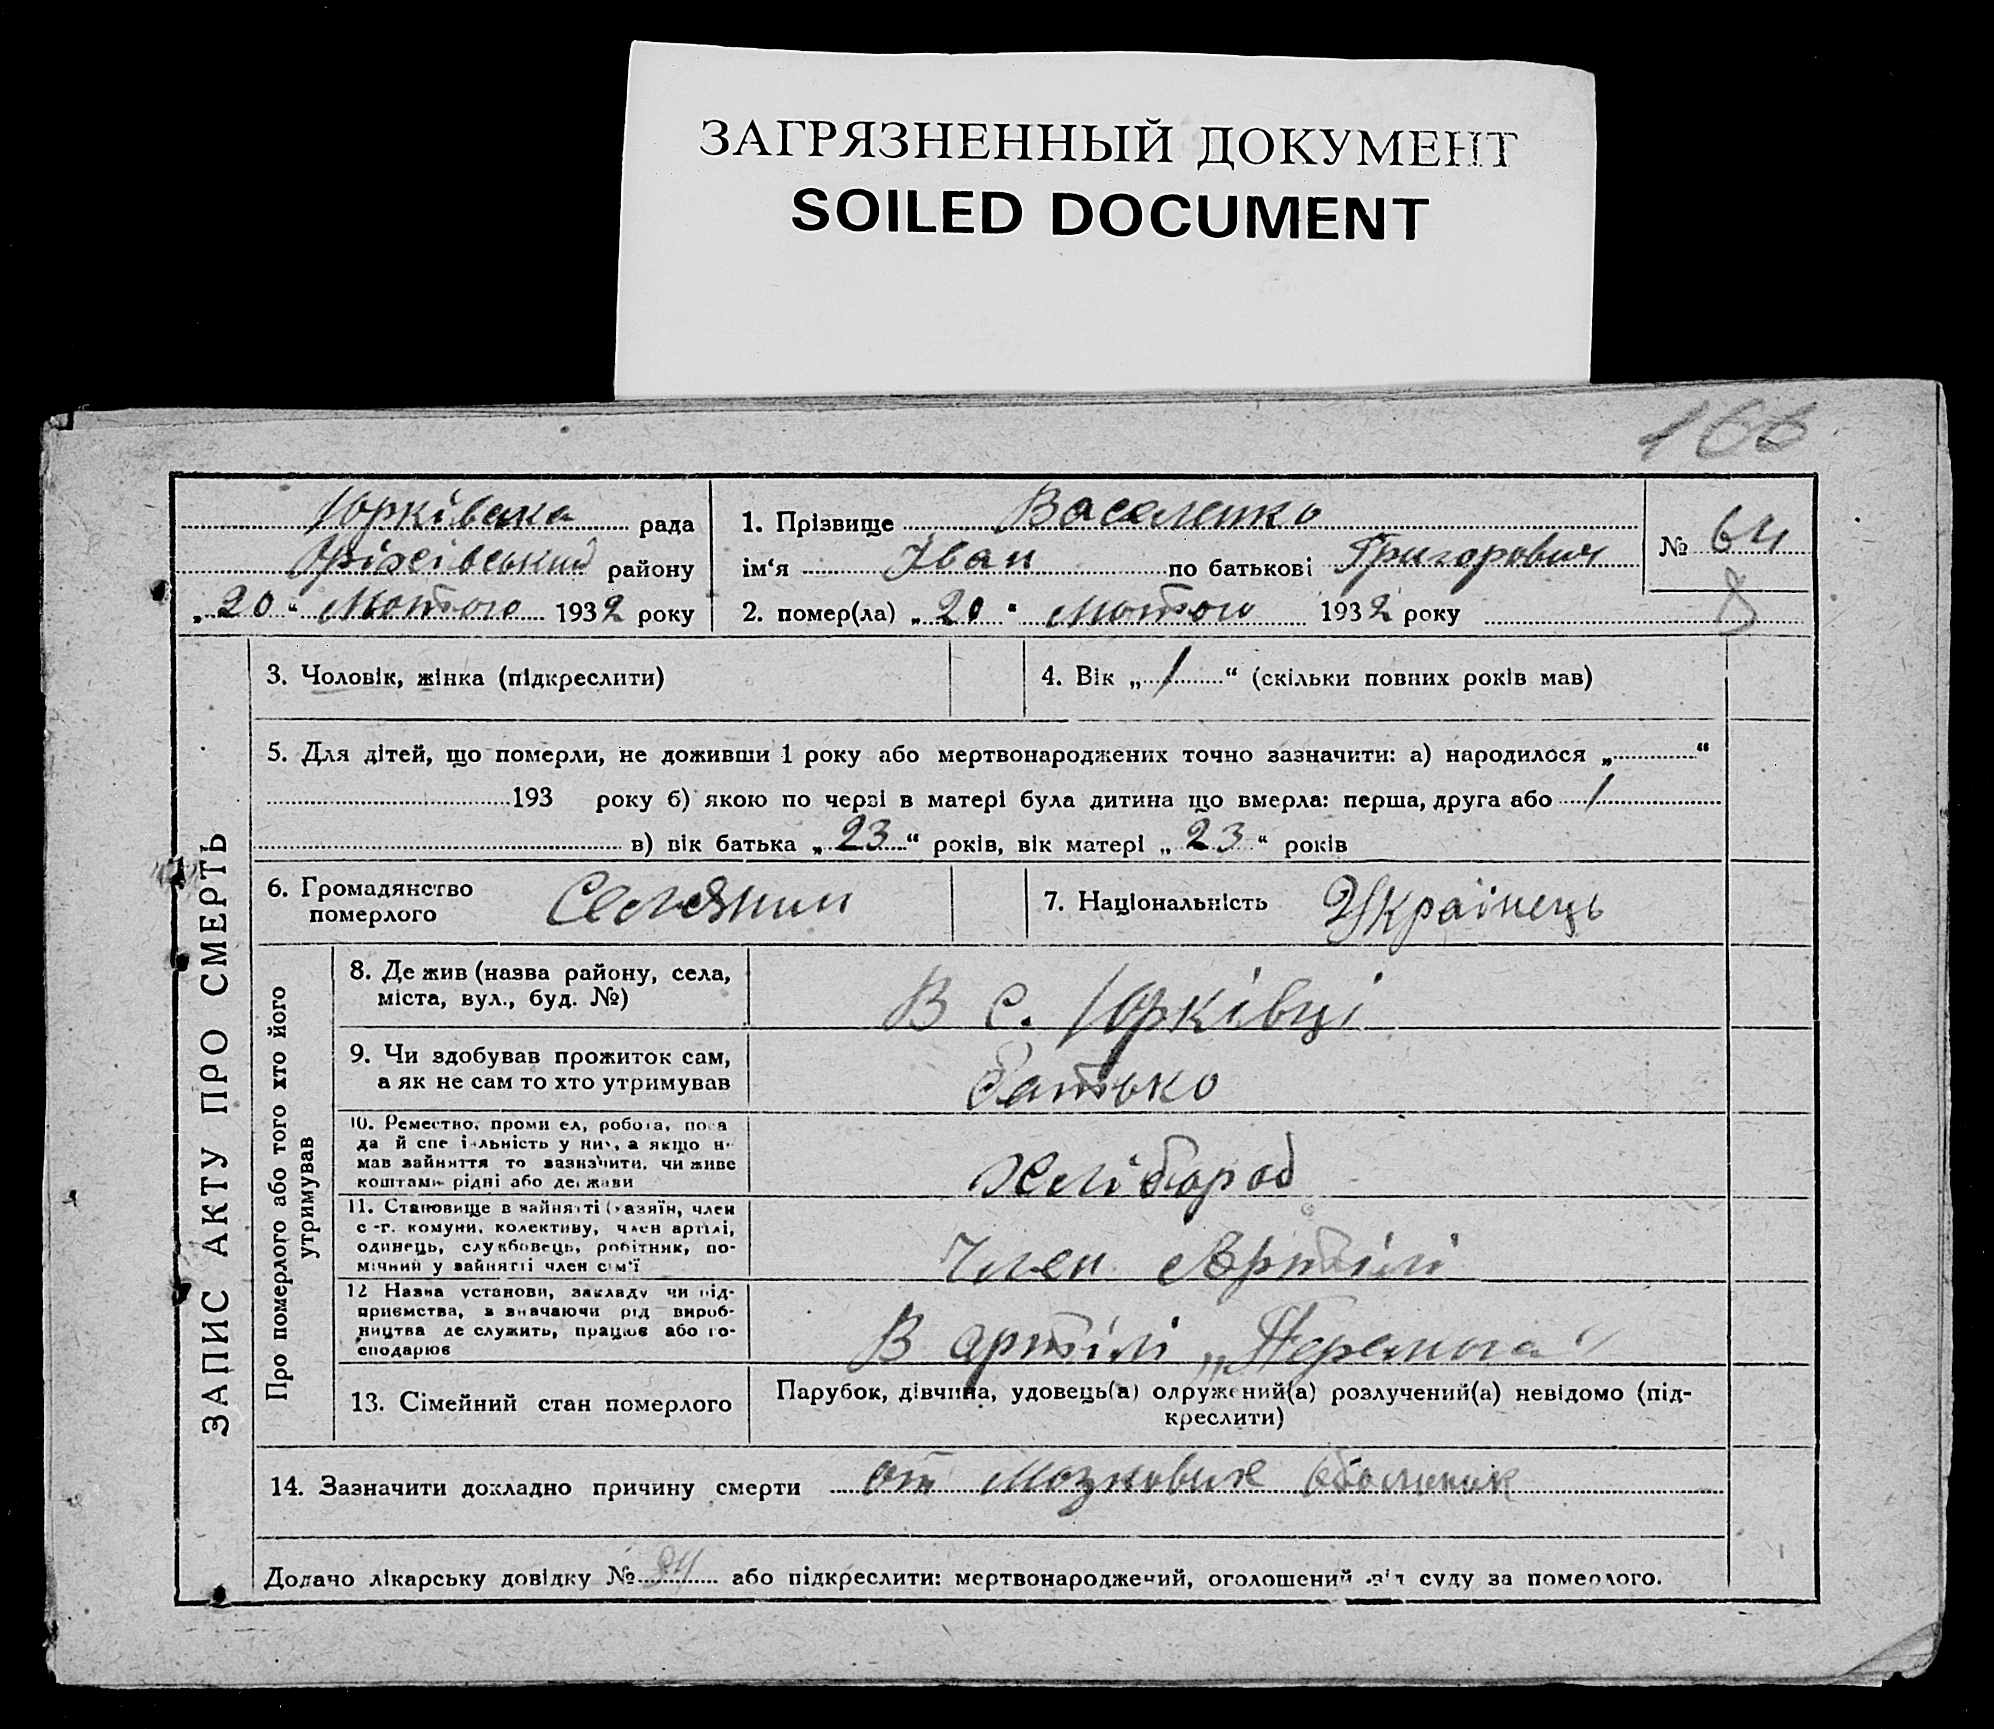 ЗАГРЯЗНЕННЫЙ ДОКУМЕНТ
SOILED DOCUMENT
166
Юрківська рада
Оріхівський району
„20“ Лютого 1932 року
1. Прізвище Василенко
ім‘я Іван по батькові Григорович
2. помер(ла) „20“ Лютого 1932 року
№ 64
ЗАПИС АКТУ ПРО СМЕРТЬ
3. Чоловік, жінка (підкреслити)
4. Вік „1“ (скільки повних років мав)
5. Для дітей, що померли, не доживши 1 року або мертвонароджених точно зазначити: а) народилося „ “
193 року б) якою по черзі в матері була дитина що вмерла: перша, друга або 1
в) вік батька „23“ років, вік матері „23“ років
6. Громадянство
померлого
Селянин
7. Національність Українець
Про померлого або того хто його
утримував
8. Де жив (назва району, села,
міста, вул., буд. №)
В с. Юрківці
9. Чи здобував прожиток сам,
а як не сам то хто утримував
батько
10. Ремество, промисел, робота, поса
да й спеціяльність у них, а якщо н
мав зайняття то зазначити, чи живе
коштами рідні або держави
Хлібороб
11. Становище в зайнятті (хазяїн, член
с-г. комуни, колективу, член артілі,
одинець, службовець, робітник, по-
мічний у зайнятті член сім'ї
Член Артілі
12 Назва установи, закладу чи під-
приємства, зазначаючи рід вироб-
ництва де служить, працює або го-
сподарює
В артілі „Перемога“
13. Сімейний стан померлого
Парубок, дівчина, удовець(а) одружений(а) розлучений(а) невідомо (під-
креслити)
14. Зазначити докладно причину смерти от Мозкових оболинок
Додано лікарську довідку № 94 або підкреслити: мертвонароджений, оголошений від суду за померлого.